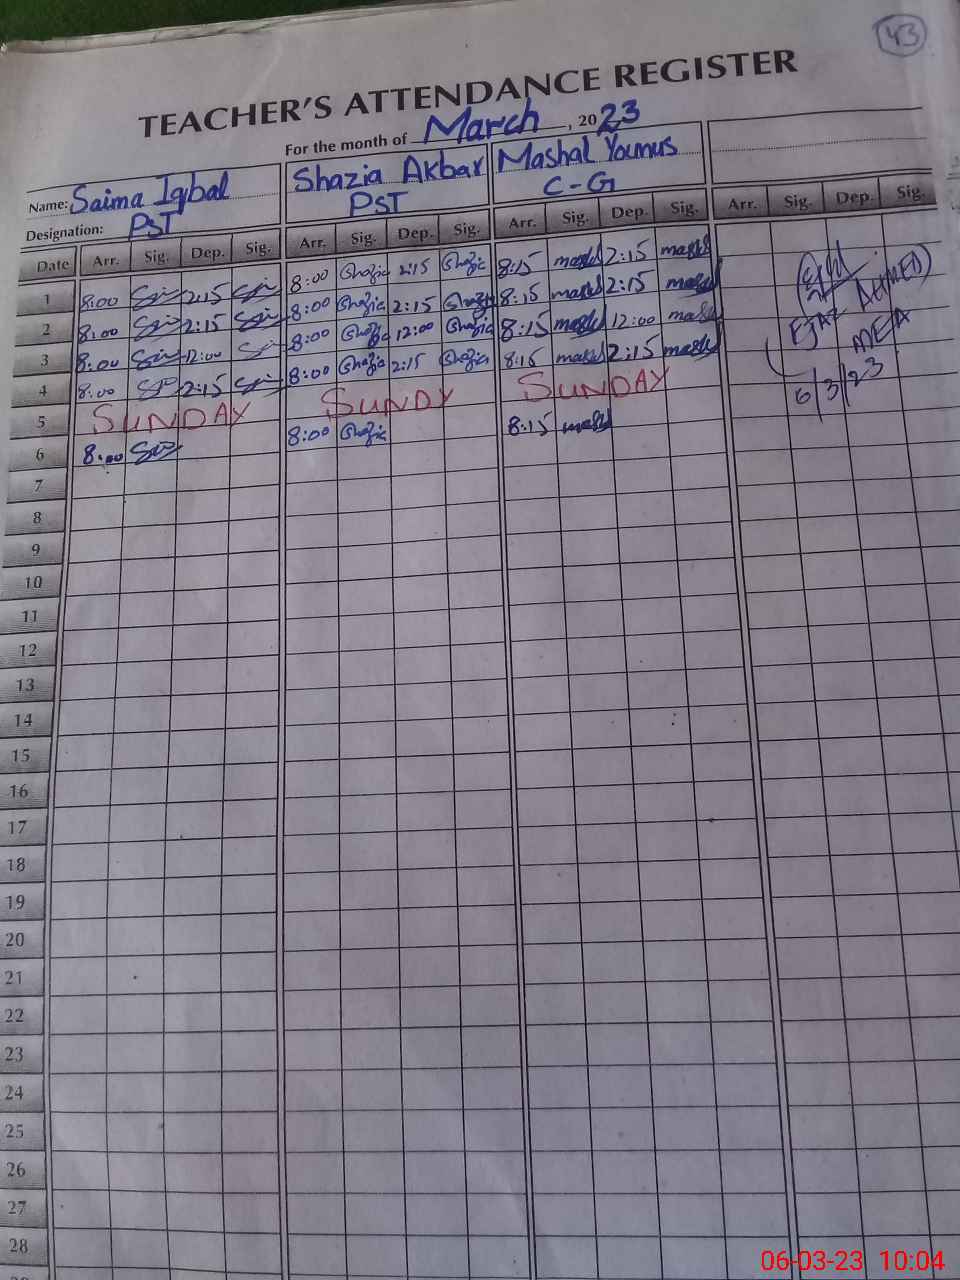 43
TEACHER'S ATTENDANCE REGISTER
For the month of March, 2023
Name: Saima Iqbal Shazia Akbar Mashal Younus
Designation: PST PST C-G
Date Arr. Sig. Dep. Sig. Arr. Sig. Dep. Sig. Arr. Sig. Dep. Sig. Arr. Sig. Dep. Sig.
1 8:00 2:15 8:00 Shazia 2:15 Shazia 8:15 mashl 2:15 mashl
2 8:00 2:15 8:00 Shazia 2:15 Shazia 8:15 mashl 2:15 mashl
3 8:00 12:00 8:00 Shazia 12:00 Shazia 8:15 mashl 12:00 mashl
4 8:00 2:15 8:00 Shazia 2:15 Shazia 8:15 mashl 2:15 mashl
5 SUNDAY SUNDY SUNDAY
6 8:00 8:00 Shazia 8:15 mashl
EJAZ AHMED
MEA
6/3/23
7
8
9
10
11
12
13
14
15
16
17
18
19
20
21
22
23
24
25
26
27
28
06-03-23 10:04